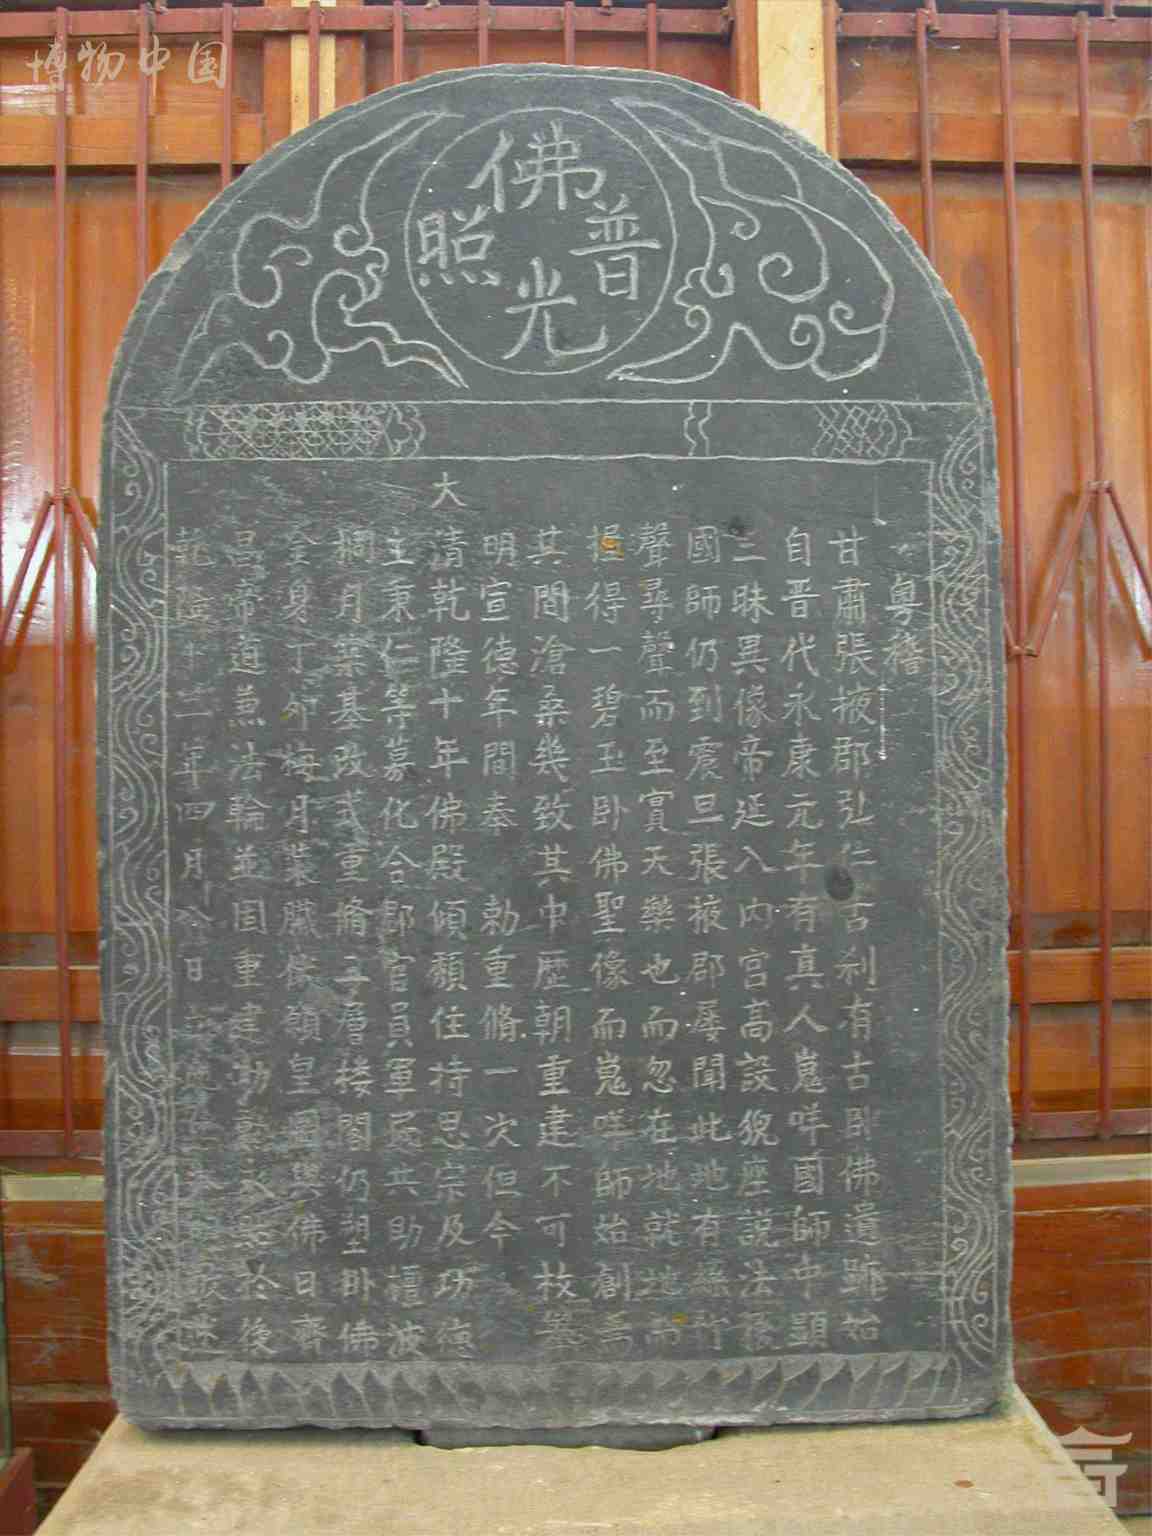 博物中国
佛光普照
粵稽
甘肅張掖郡弘仁古刹有古卧佛遺跡始
自晋代永康元年有真人嵬咩國師中顕
三昧異像帝延入内宫高設猊座説法
國師仍到震旦張掖郡屡聞此地有絲竹
聲尋聲而至實天樂也而忽在地就地而
掘得一碧玉卧佛聖像而嵬咩師始創焉
其間滄桑幾致其中歷朝重建不可枚
明宣德年間奉 勅重脩一次但今
大清乾隆十年佛殿傾頹住持思宗及功德
主秉仁等募化合郡官員軍民共助
桐月築基改式重脩三層楼閣仍塑卧佛
金身丁卯梅月裝 皇圖與佛日齊
昌帝道兼法輪並固重建 於後
乾隆十二年四月 八日立